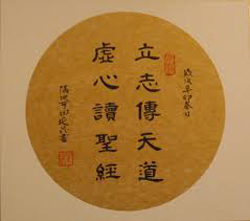 歲次辛卯春日
立志傳天道
虛心讀聖經